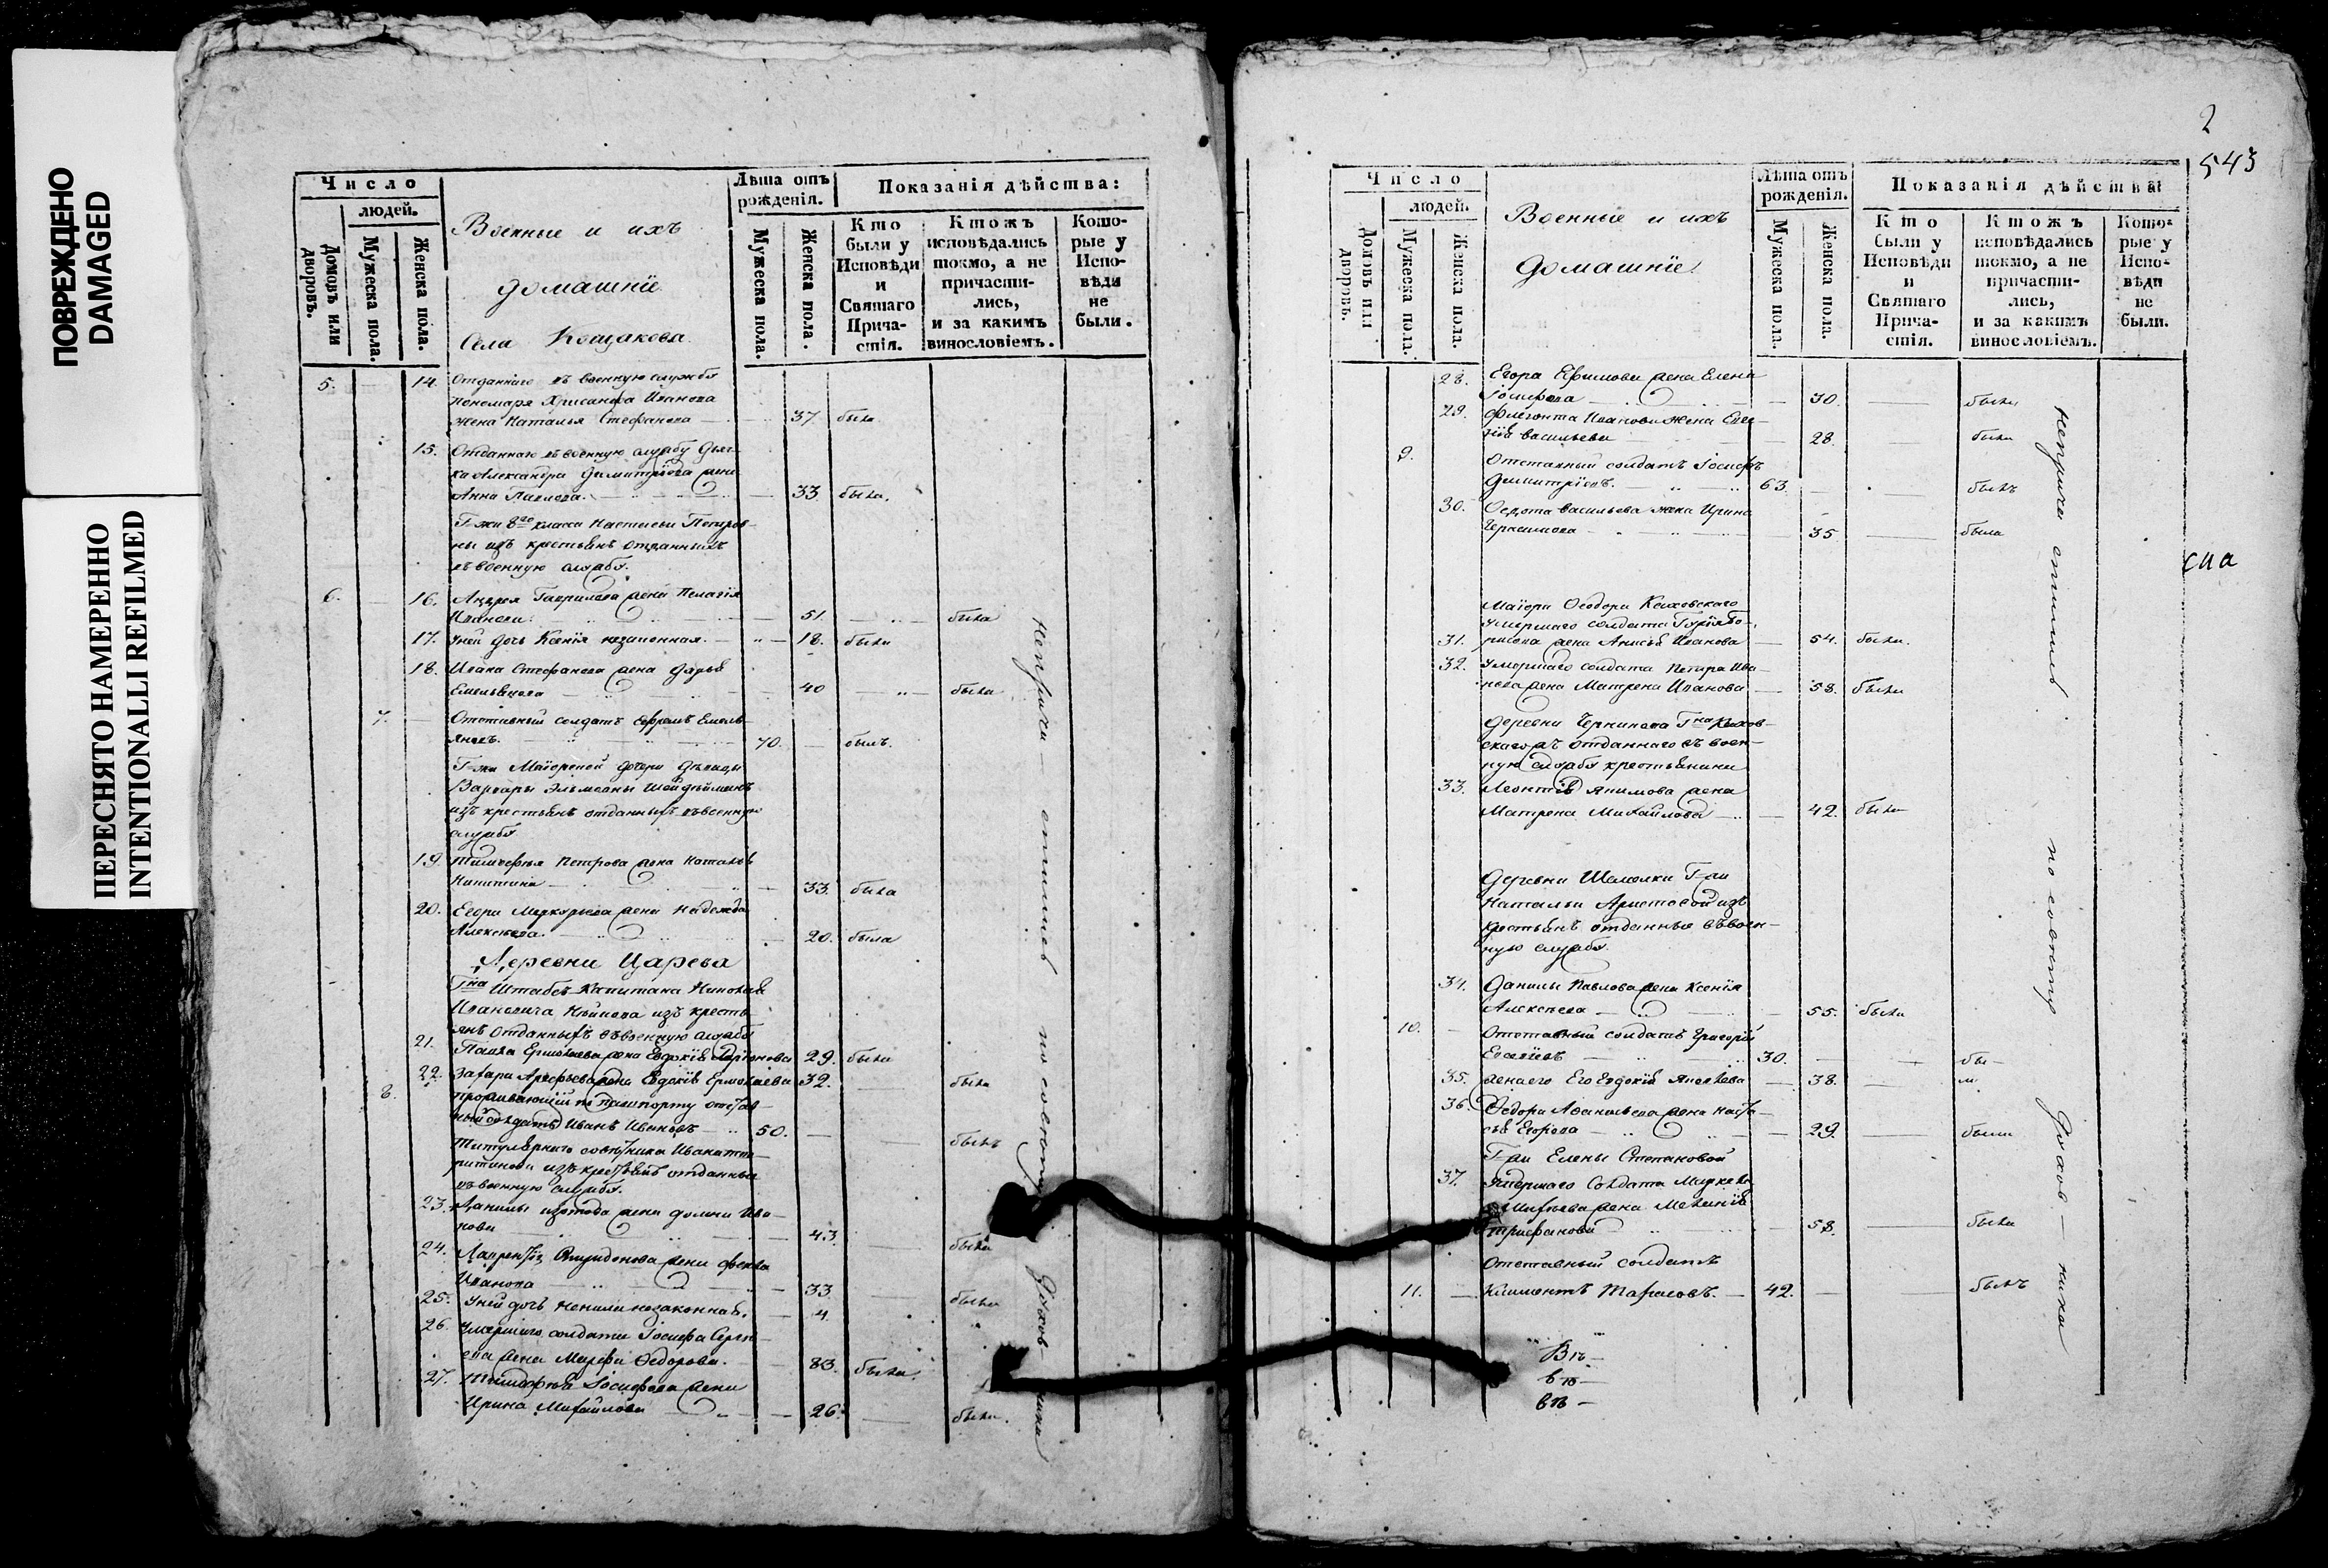 ПОВРЕЖДЕНО
DAMAGED
ПЕРЕСНЯТО НАМЕРЕННО
INTENTIONALLI REFILMED
Число
людей.
Домовъ или дворовъ.
Мужеска пола.
Женска пола.
Военные и ихъ
домашнïе
Села Кощакова
Лѣта отъ рожденія.
Мужеска пола.
Женска пола.
Показанія дѣйства:
Кто были у Исповѣди и Святаго Причастія.
Ктожъ исповѣдались токмо, а не причастились, и за какимъ винословіемъ.
Которые у Исповѣди не были.
5. 14. Отданнаго въ военную службу
пономаря Хрисанфа Иванова
жена Наталья Стефанова 37 была
15. Отданнаго въ военную службу дьяч-
ка Александра Димитрïева жена
Анна Павлова. 33 была.
Г-жи 8го класса Настасьи Петров-
ны изъ крестьянъ отданныхъ
въ военную службу.
6. 16. Андрея Гаврилова жена Пелагïя
Иванова 51. была
17. У ней дочь Ксенïя незаконная. 18. была
18. Ивана Стефанова жена Дарья
Емельянова 40 была
7. Отставный солдатъ Ефремъ Емель-
яновъ. 70. былъ.
Г-жи Маïорской дочери дѣвицы
Варвары
изъ крестьянъ отданныхъ въ военную
службу
19. Тимофея Петрова жена Наталья
Никитина 33. была
20. Егора Меркурьева жена Надежда
Алексѣева. 20. была
Деревни Царева
Г-на Штабсъ-Капитана Николая
Ивановича изъ кресть-
янъ отданныхъ въ военную службу
21. Павла Ермолаева жена Евдокïя 29. была
22. Захара Арефьева жена Евдокïя Ермолаева 32. была
8. проживающïй по пашпорту отстав-
ной солдатъ Иванъ Ивановъ 50. былъ
Титулярнаго совѣтника Ивана
изъ крестьянъ отданные
въ военную службу.
23. Данилы жена Ива-
нова 43. была
24. Лаврентïя Спиридонова жена Фекла
Иванова 33 была
25. У ней дочь незаконная. 4.
26. Умершаго солдата Iосифа Серге-
ева жена Марфа Ѳедорова. 83. была.
27. Тимофея Iосифова жена
Ирина Михайлова 26. была.
по совѣту духовника
2
543
Число
людей.
Домовъ или дворовъ.
Мужеска пола.
Женска пола.
Военные и ихъ
домашнïе.
Лѣта отъ рожденія.
Мужеска пола.
Женска пола.
Показанія дѣйства:
Кто были у Исповѣди и Святаго Причастія.
Ктожъ исповѣдались токмо, а не причастились, и за какимъ винословіемъ.
Которые у Исповѣди не были.
28. Егора Ефимова жена Елена
Iосифова 30. была
29. Флегонта Иванова жена
Васильева 28. была
9. Отставный солдатъ Iосифъ
Димитрïевъ. 63. былъ
30. Ѳедота Васильева жена Ирина
Герасимова 35 была
Маïора Ѳеодора
умершаго солдата
31. жена Анисья Иванова 54. была.
32. Умершаго солдата Петра Ива-
нова жена Матрена Иванова 58. была
Деревни Черникова Г-на
отданнаго въ воен-
ную службу крестьянина
33. Леонтïя Якимова жена
Матрена Михайлова 42. была
Деревни Шамолки Г-жи
Натальи Аристовой изъ
крестьянъ отданные въ воен-
ную службу.
34. Данилы Павлова жена Ксенïя
Алексѣева 55. была
10. Отставный солдатъ Григорïй
30. бы-
35. жена его Евдокïя Яковлева 38. ли
36. Ѳедора Афанасьева жена Наста-
сья Егорова 29. была
Г-жи Елены Степановой
37. Умершаго Солдата
жена Меланïя
Трифанова 58. была
Отставный солдатъ
11. Климентъ Тарасовъ. 42. былъ
по совѣту духов-ника